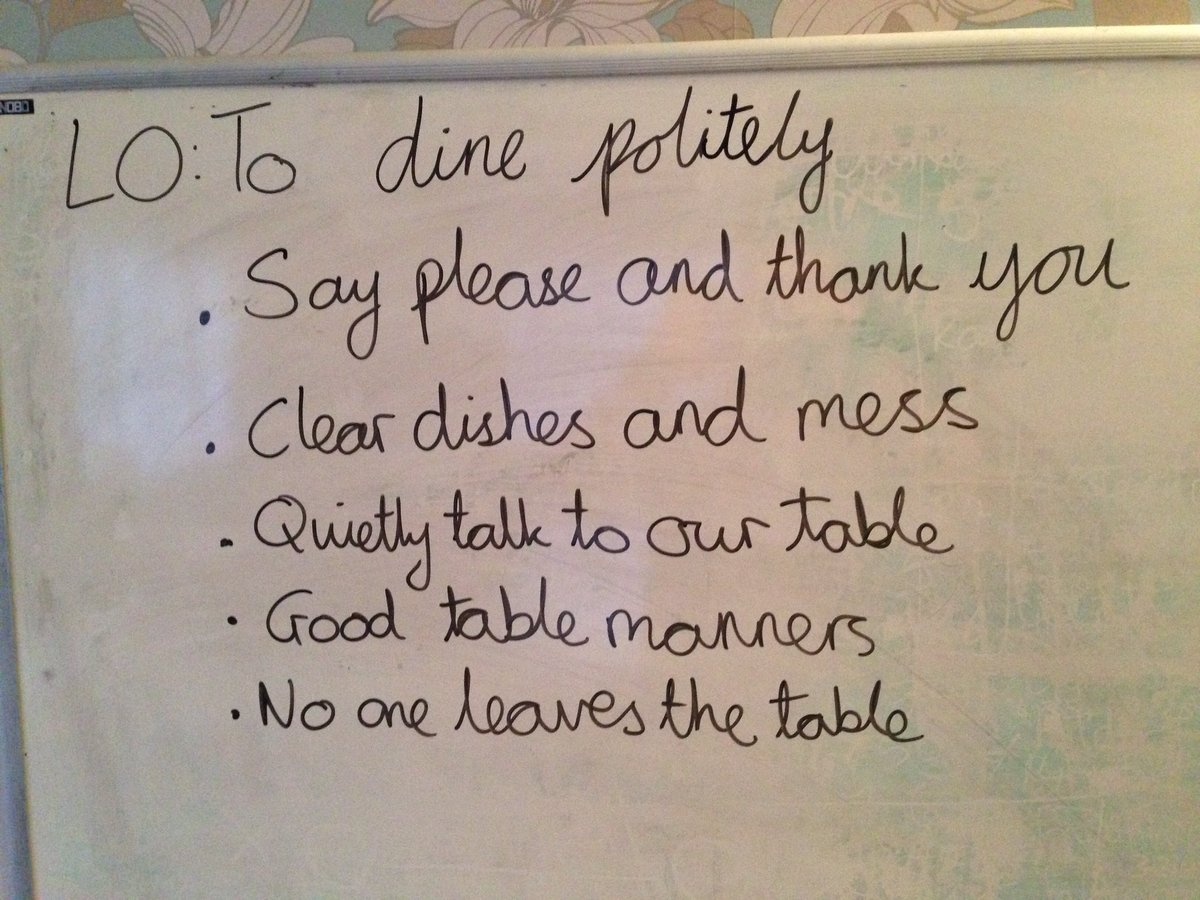 NOBO
LO: To dine politely
. Say please and thank you
. Clear dishes and mess
. Quietly talk to our table
. Good table manners
. No one leaves the table